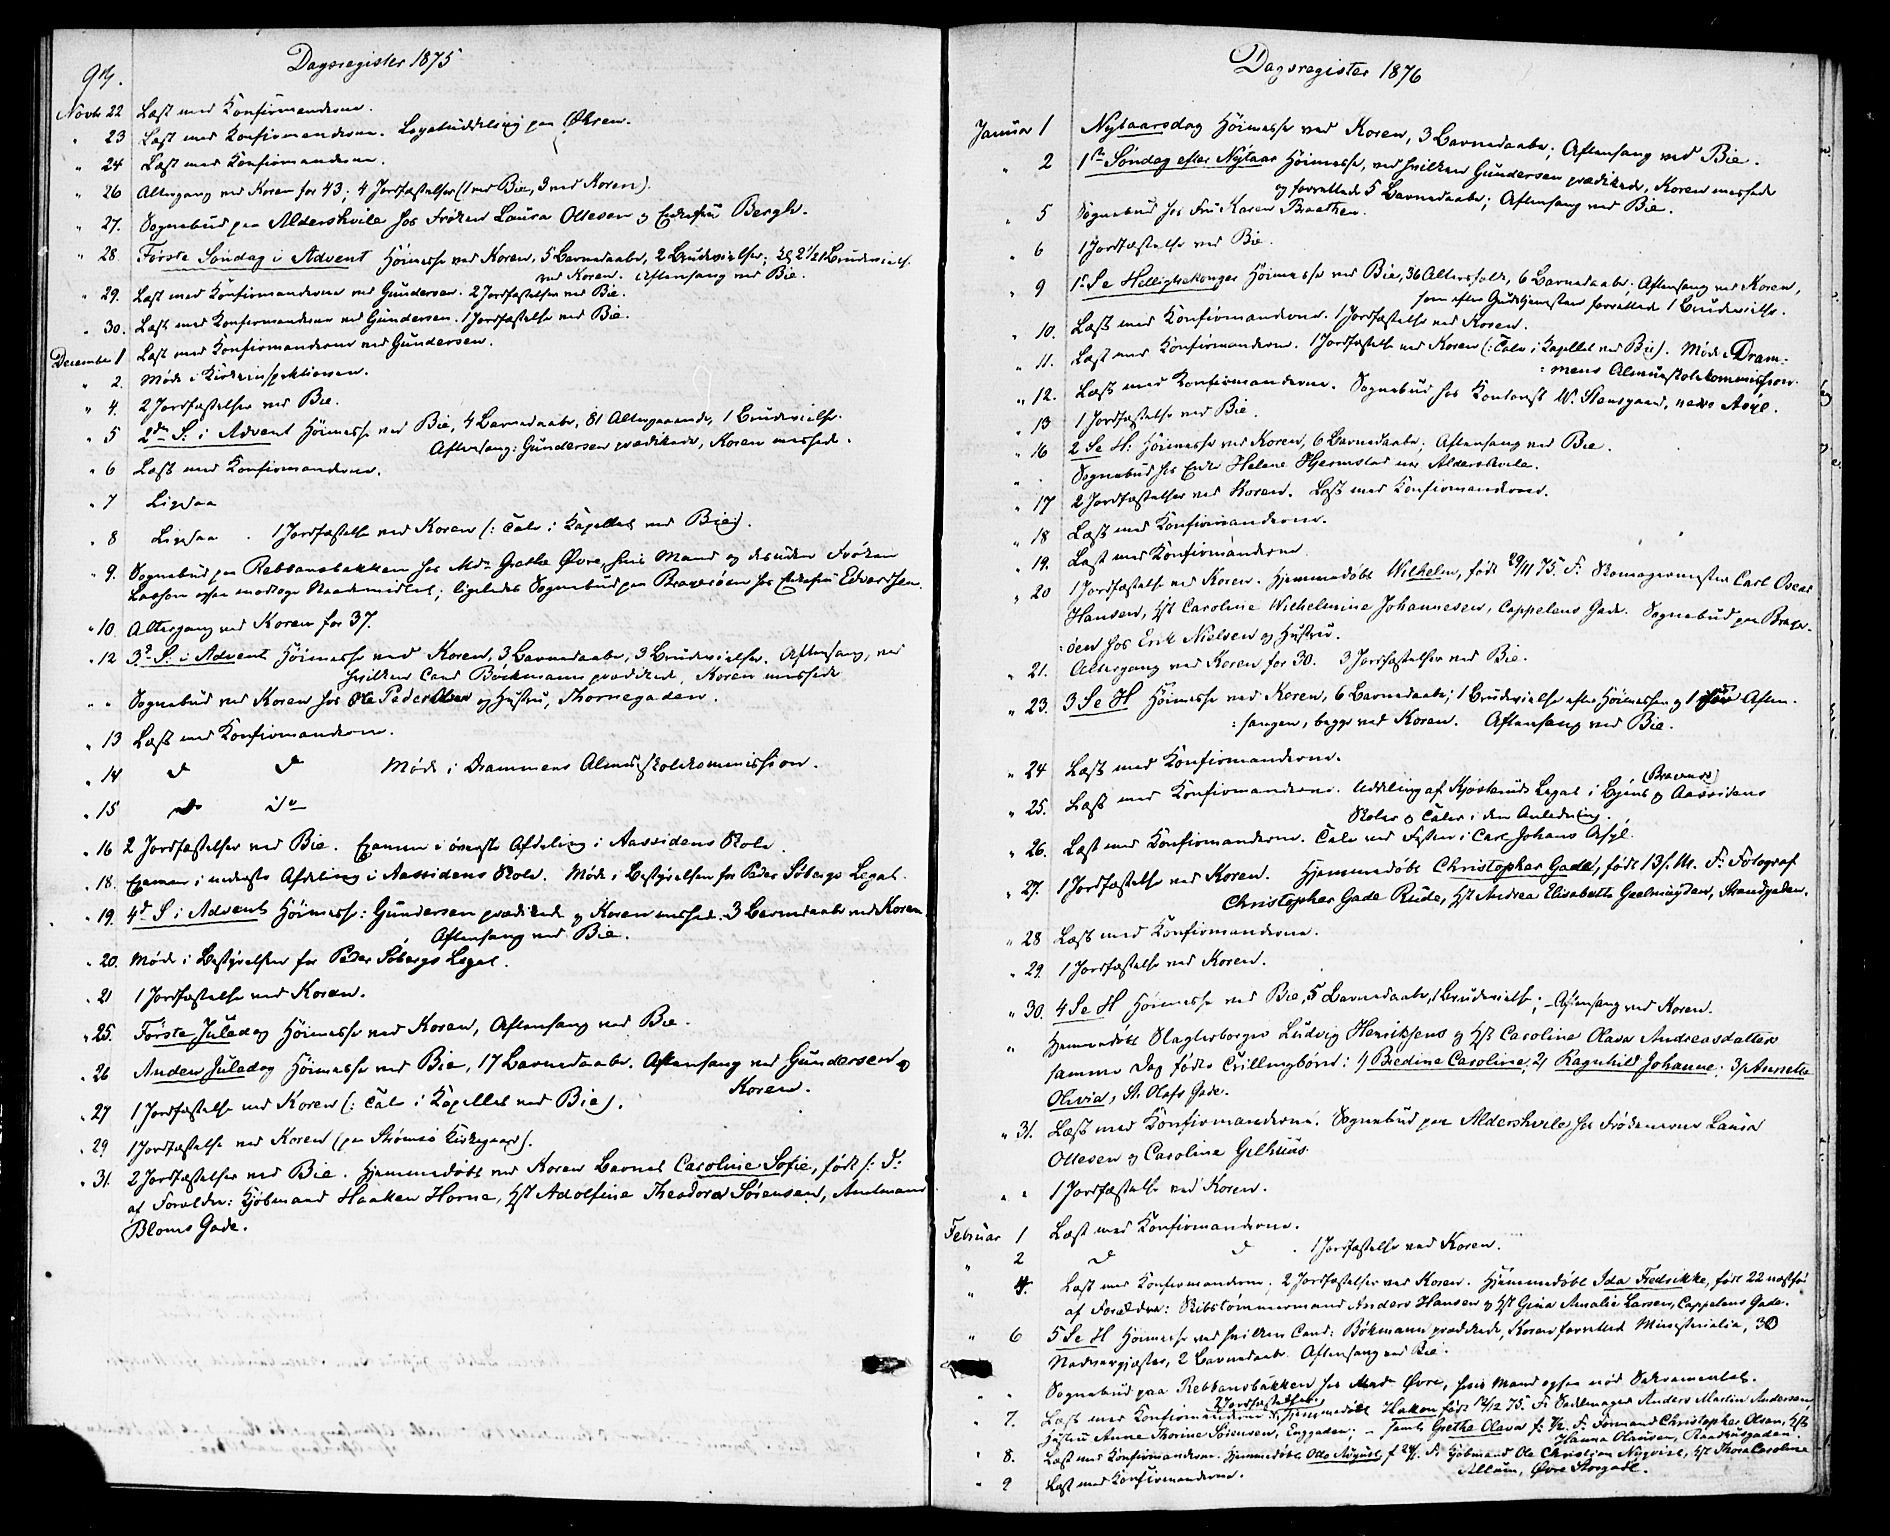 913.
Dagsregister 1875
Novbr 22 Læst med Konfirmanderne.
" 23 Læst med Konfirmanderne. Legatuddeling paa Økern.
" 24 Læst med Konfirmanderne.
" 26 Altergang ved Koren for 43; 4 Jordfæstelser (1 ved Bie, 3 ved Koren).
" 27. Sognebud paa Aldershvile hos Frøken Laura Ottesen og Enkefru Bergh.
" 28 Første Søndag i Advent Høimesse ved Koren, 5 Barnedaabe, 2 Brudevielser; Kl 2 1/2 1 Brudevielse
ved Koren. Aftensang ved Bie.
" 29. Læst med Konfirmanderne ved Gundersen. 2 Jordfæstelser ved Bie.
" 30. Læst med Konfirmanderne ved Gundersen. 1 Jordfæstelse ved Bie.
December 1 Læst med Konfirmanderne ved Gundersen.
" 2. Møde i Kirkeinspektionen.
" 4. 2 Jordfæstelser ved Bie.
" 5 2den S. i Advent Høimesse ved Bie, 4 Barnedaabe, 81 Altergaaende, 1 Brudevielse.
Aftensang: Gundersen prædikede, Koren messede.
" 6 Læst med Konfirmanderne.
" 7 Ligesaa
" 8 Ligesaa . 1 Jordfæstelse ved Koren (: Tale i Kapellet ved Bie).
" 9. Sognebud paa Rebbansbakken hos Md. Grethe Øvre, hvis Mand og desuden Frøken
Lasson ogsaa modtoge Naademidlet; ligeledes Sognebud paa Bragerøen hos Enkefru Edvardsen.
" 10. Altergang ved Koren for 37.
" 12 3d S. i Advent Høimesse ved Koren, 3 Barnedaabe, 3 Brudevielser. Aftensang, ved
hvilken Cand Bøckmann prædikede, Koren messede
" " Sognebud ved Koren hos Ole Peder Olsen og Hustru, Thornegaden.
" 13 Læst med Konfirmanderne.
" 14 do do Møde i Drammens Almueskolekommission.
" 15 do do
" 16 2 Jordfæstelser ved Bie. Examen i øverste Afdeling i Aassidens Skole.
" 18. Examen i nederste Afdeling i Aassidens Skole. Møde i Bestyrelsen for Peder Søbergs Legat.
" 19. 4d S i Advent Høimesse: Gundersen prædikede og Koren messede. 3 Barnedaabe ved Koren.
Aftensang ved Bie.
" 20. Møde i Bestyrelsen for Peder Søbergs Legat.
" 21 1 Jordfæstelse ved Koren.
" 25. Første Juledag Høimesse ved Koren, Aftensang ved Bie.
" 26 Anden Juledag Høimesse ved Bie, 17 Barnedaabe. Aftensang ved Gundersen og
Koren.
" 27 1 Jordfæstelse ved Koren (: Tale i Kapellet ved Bie).
" 29 1 Jordfæstelse ved Koren (paa Strømsø Kirkegaard).
" 31. 2 Jordfæstelser ved Bie. Hjemmedøbt ved Koren Barnet Caroline Sofie, født s: D:
af Forældre: Kjøbmand Haaken Horne, Hst Adolfine Theodora Sørensen, Amtmand
Bloms Gade.
Dagsregister 1876
Januar 1 Nytaarsdag Høimesse ved Koren, 3 Barnedaabe; Aftensang ved Bie.
" 2 1ste Søndag efter Nytaar Høimesse, ved hvilken Gundersen prædikede, Koren messede
og forrettede 5 Barnedaabe; Aftensang ved Bie.
" 5 Sognebud hos Fru Karen Braathen.
" 6 1 Jordfæstelse ved Bie.
" 9 1. S e Helligtrekonger Høimesse ved Bie, 36 Altersfolk, 6 Barnedaabe. Aftensang ved Koren,
som efter Gudstjenesten forrettede 1 Brudevielse.
" 10. Læst med Konfirmanderne. 1 Jordfæstelse ved Koren.
" 11. Læst med Konfirmanderne. 1 Jordfæstelse ved Koren (: Tale i Kapellet ved Bie). Møde i Dram=
=mens Almueskolekommission.
" 12. Læst med Konfirmanderne. Sognebud hos Kontorist W. Stensgaard, Asyl.
" 13 1 Jordfæstelse ved Bie.
" 16 2 S e H: Høimesse ved Koren, 6 Barnedaabe; Aftensang ved Bie.
" . Sognebud hos Enke Helene Hjermstad paa Aldershvile.
" 17 2 Jordfæstelser ved Koren. Læst med Konfirmanderne.
" 18 Læst med Konfirmanderne.
" 19. Læst med Konfirmanderne.
" 20 1 Jordfæstelse ved Koren. Hjemmedøbt Wilhelm, født 29/11 75. F: Skomagermester Carl Oscar
Hansen, Hst Caroline Wilhelmine Johannesen, Cappelens Gade. Sognebud paa Brager=
=øen hos Erik Nielsen og Hustru.
" 21. Altergang ved Koren for 30. 3 Jordfæstelser ved Bie.
" 23. 3 S e H Høimesse ved Koren, 6 Barnedaabe; 1 Brudevielse efter Høimessen og 1 før Aften=
=sangen, begge ved Koren. Aftensang ved Bie.
" 24 Læst med Konfirmanderne.
" 25. Læst med Konfirmanderne. Uddeling af Kjøsterud's Legat i Byens (Bragernes) og Aassidens
Skoler og Taler i den Anledning.
" 26. Læst med Konfirmanderne. Tale ved Festen i Carl Johans Asyl.
" 27. 1 Jordfæstelse ved Koren. Hjemmedøbt Christopher Gade, født 13/ . F: Fotograf
Christopher Gade Rude, Hst Andrea Elisabeth Gaelmuyden, Strandgaden.
" 28 Læst med Konfirmanderne.
" 29. 1 Jordfæstelse ved Koren.
" 30. 4 S e H Høimesse ved Bie, 5 Barnedaabe, 1 Brudevielse; - Aftensang ved Koren.
" Hjemmedøbt Slagterborger Ludvig Henriksens og Hst Caroline Olava Andreasdatters
samme Dag fødte Trillingbørn: 1) Bredine Caroline; 2) Ragnhild Johanne; 3) Annette
Olivia, St. Olafs Gade.
" 31. Læst med Konfirmanderne. Sognebud paa Aldershvile hos Frøknerne Laura
Ottesen og Caroline Gelhuus.
" " 1 Jordfæstelse ved Koren.
Februar 1 Læst med Konfirmanderne.
" 2 do do . 1 Jordfæstelse ved Koren.
" 4. Læst med Konfirmanderne. 2 Jordfæstelser ved Koren. Hjemmedøbt Ida Fredrikke, født 22 næstfør
af Forældre: Skibstømmermand Anders Hansen og Hst Gina Amalie Larsen, Cappelens Gade.
" 6 5 S e H Høimesse ved hvilken Cand: Bøkmann prædikede, Koren forrettede Ministerialia, 30
Nadvergjæster, 2 Barnedaabe. Aftensang ved Bie.
" " Sognebud paa Rebbansbakken hos Mad. Øvre, hvis Mand ogsaa nød Sakramentet.
2 Jordfæstelser
" 7. Læst med Konfirmanderne. Hjemmedøbt Hakon, født 12/12 75. F: Sadelmager Anders Martin Andersen,
Hustru Anne Thorine Sørensen, Enggaden; - samt Grethe Olava f: F: Formand Christopher Olsen, Hst
Hanna Olausen, Raadhusgaden.
" 8. Læst med Konfirmanderne. Hjemmedøbt Otto August, f 24/1. F: Kjøbmand Ole Christian Nyqvist, Hst Thora Caroline
Allum, Øvre Storgade.
" 9 Læst med Konfirmanderne.